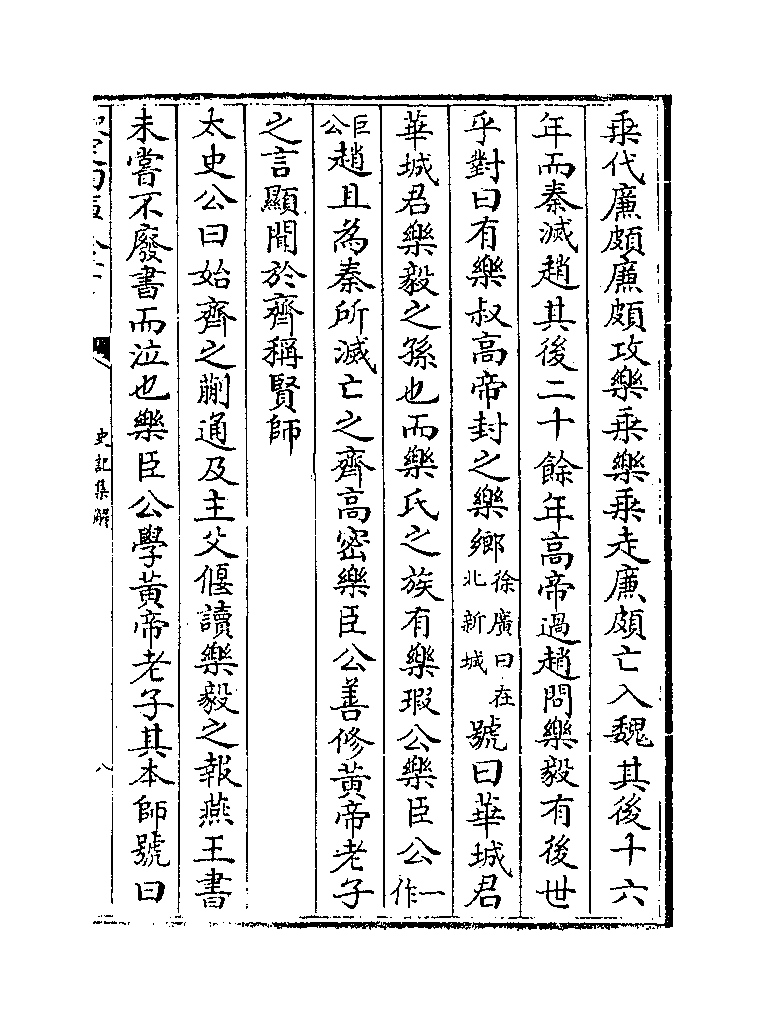 乗代廉頗廉頗攻樂乗樂乗走廉頗亡入魏其後十六
年而秦滅趙其後二十餘年髙帝過趙問樂毅有後世
乎對曰有樂叔髙帝封之樂鄉徐廣曰在北新城號曰華城君
華城君樂毅之孫也而樂氏之族有樂瑕公樂臣公一作
臣公趙且為秦所滅亡之齊髙密樂臣公善修黄帝老子
之言顯聞於齊稱賢師
太史公曰始齊之蒯通及主父偃讀樂毅之報燕王書
未嘗不廢書而泣也樂臣公學黄帝老子其本師號曰
史記集解
八